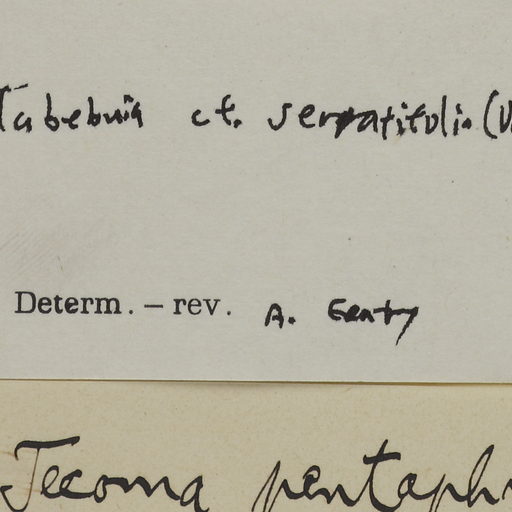 Tabebuia cf. serratifolia (V
Determ. – rev. A. Gentry
Tecoma pentaph